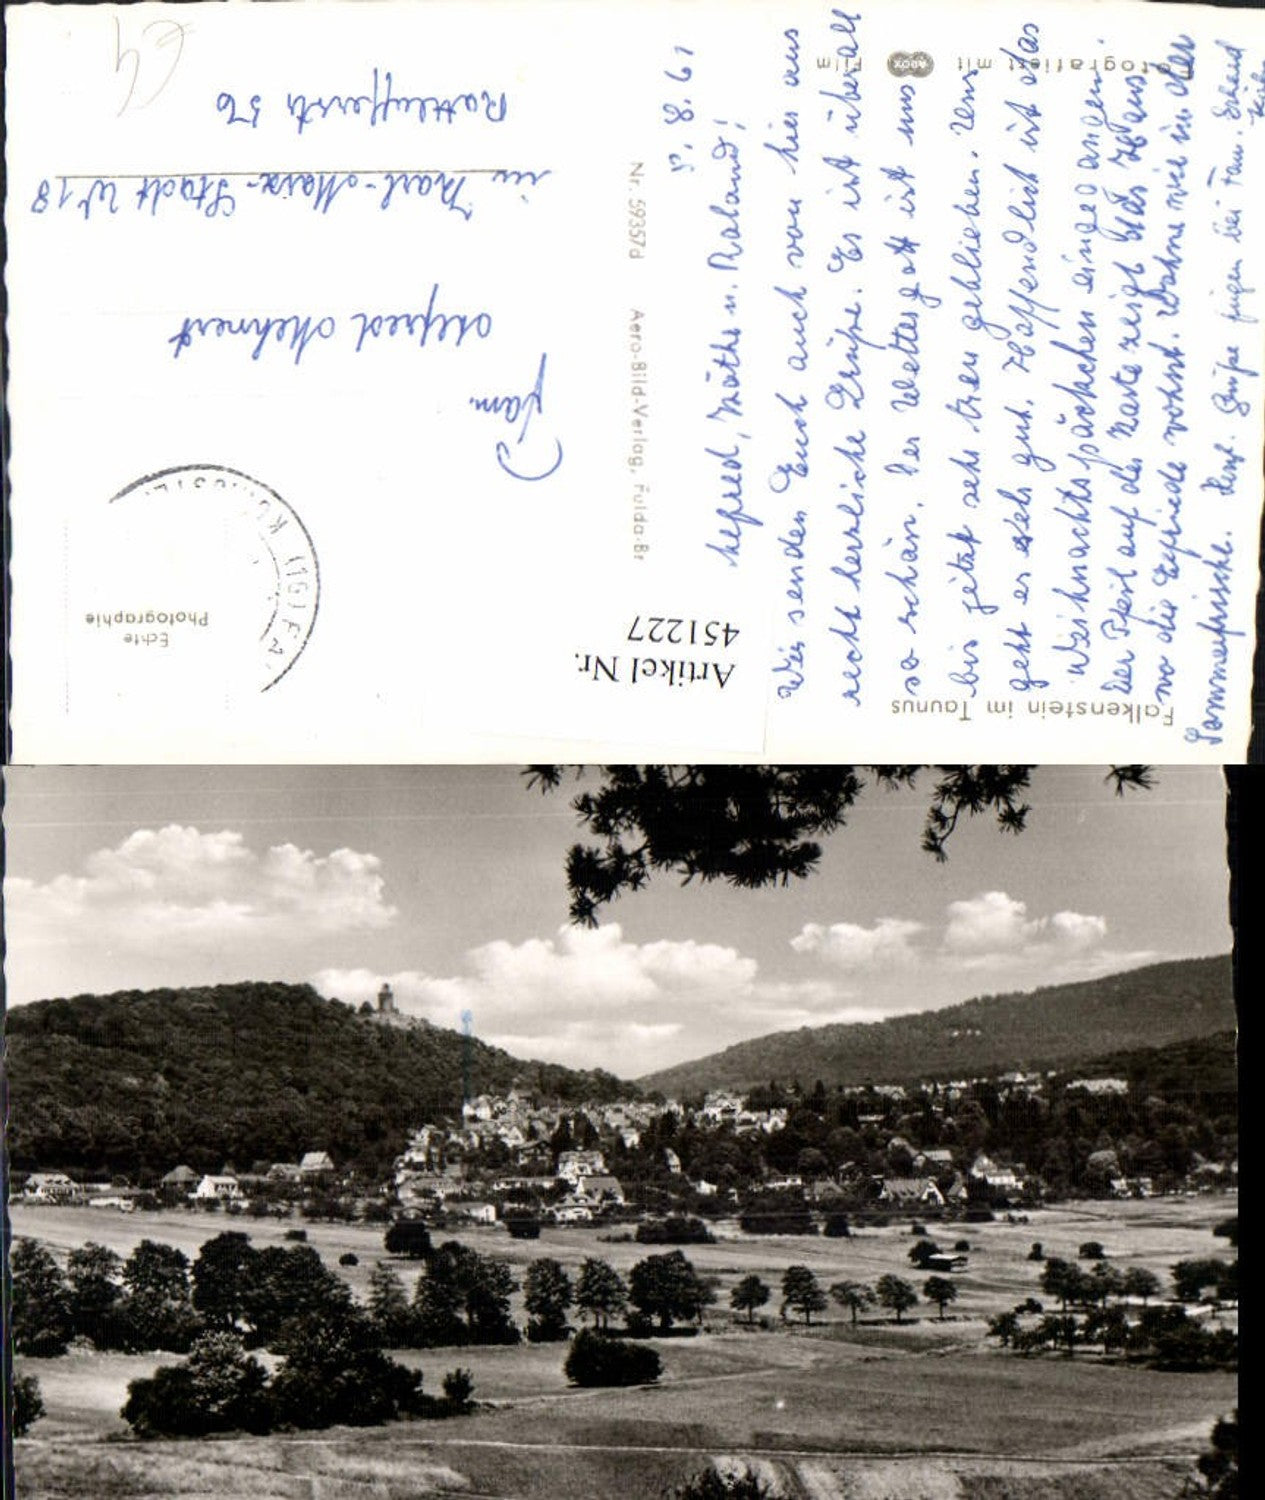 Falkenstein im Taunus
Fotografiert mit ADOX Film
5. 8. 61
Alfred, Käthe u. Roland!
Wir senden Euch auch von hier aus
recht herzliche Grüße. Es ist überall
so schön. Der Wettergott ist uns
bis jetzt sehr treu geblieben. Uns
geht es sehr gut. Hoffendlich ist das
Weihnachtspäckchen eingegangen.
Der Pfeil auf der Karte zeigt das Haus,
wo die Elfriede wohnt. Wohnen wie in der
Sommerfrische. Herzl. Grüße fügen bei Fam.
Nr. 59357d Aero-Bild-Verlag, Fulda-Br
Echte
Photographie
Fam.
Alfred Mehnert
in Karl-Marx-Stadt W 18
56
Artikel Nr.
451227
€4